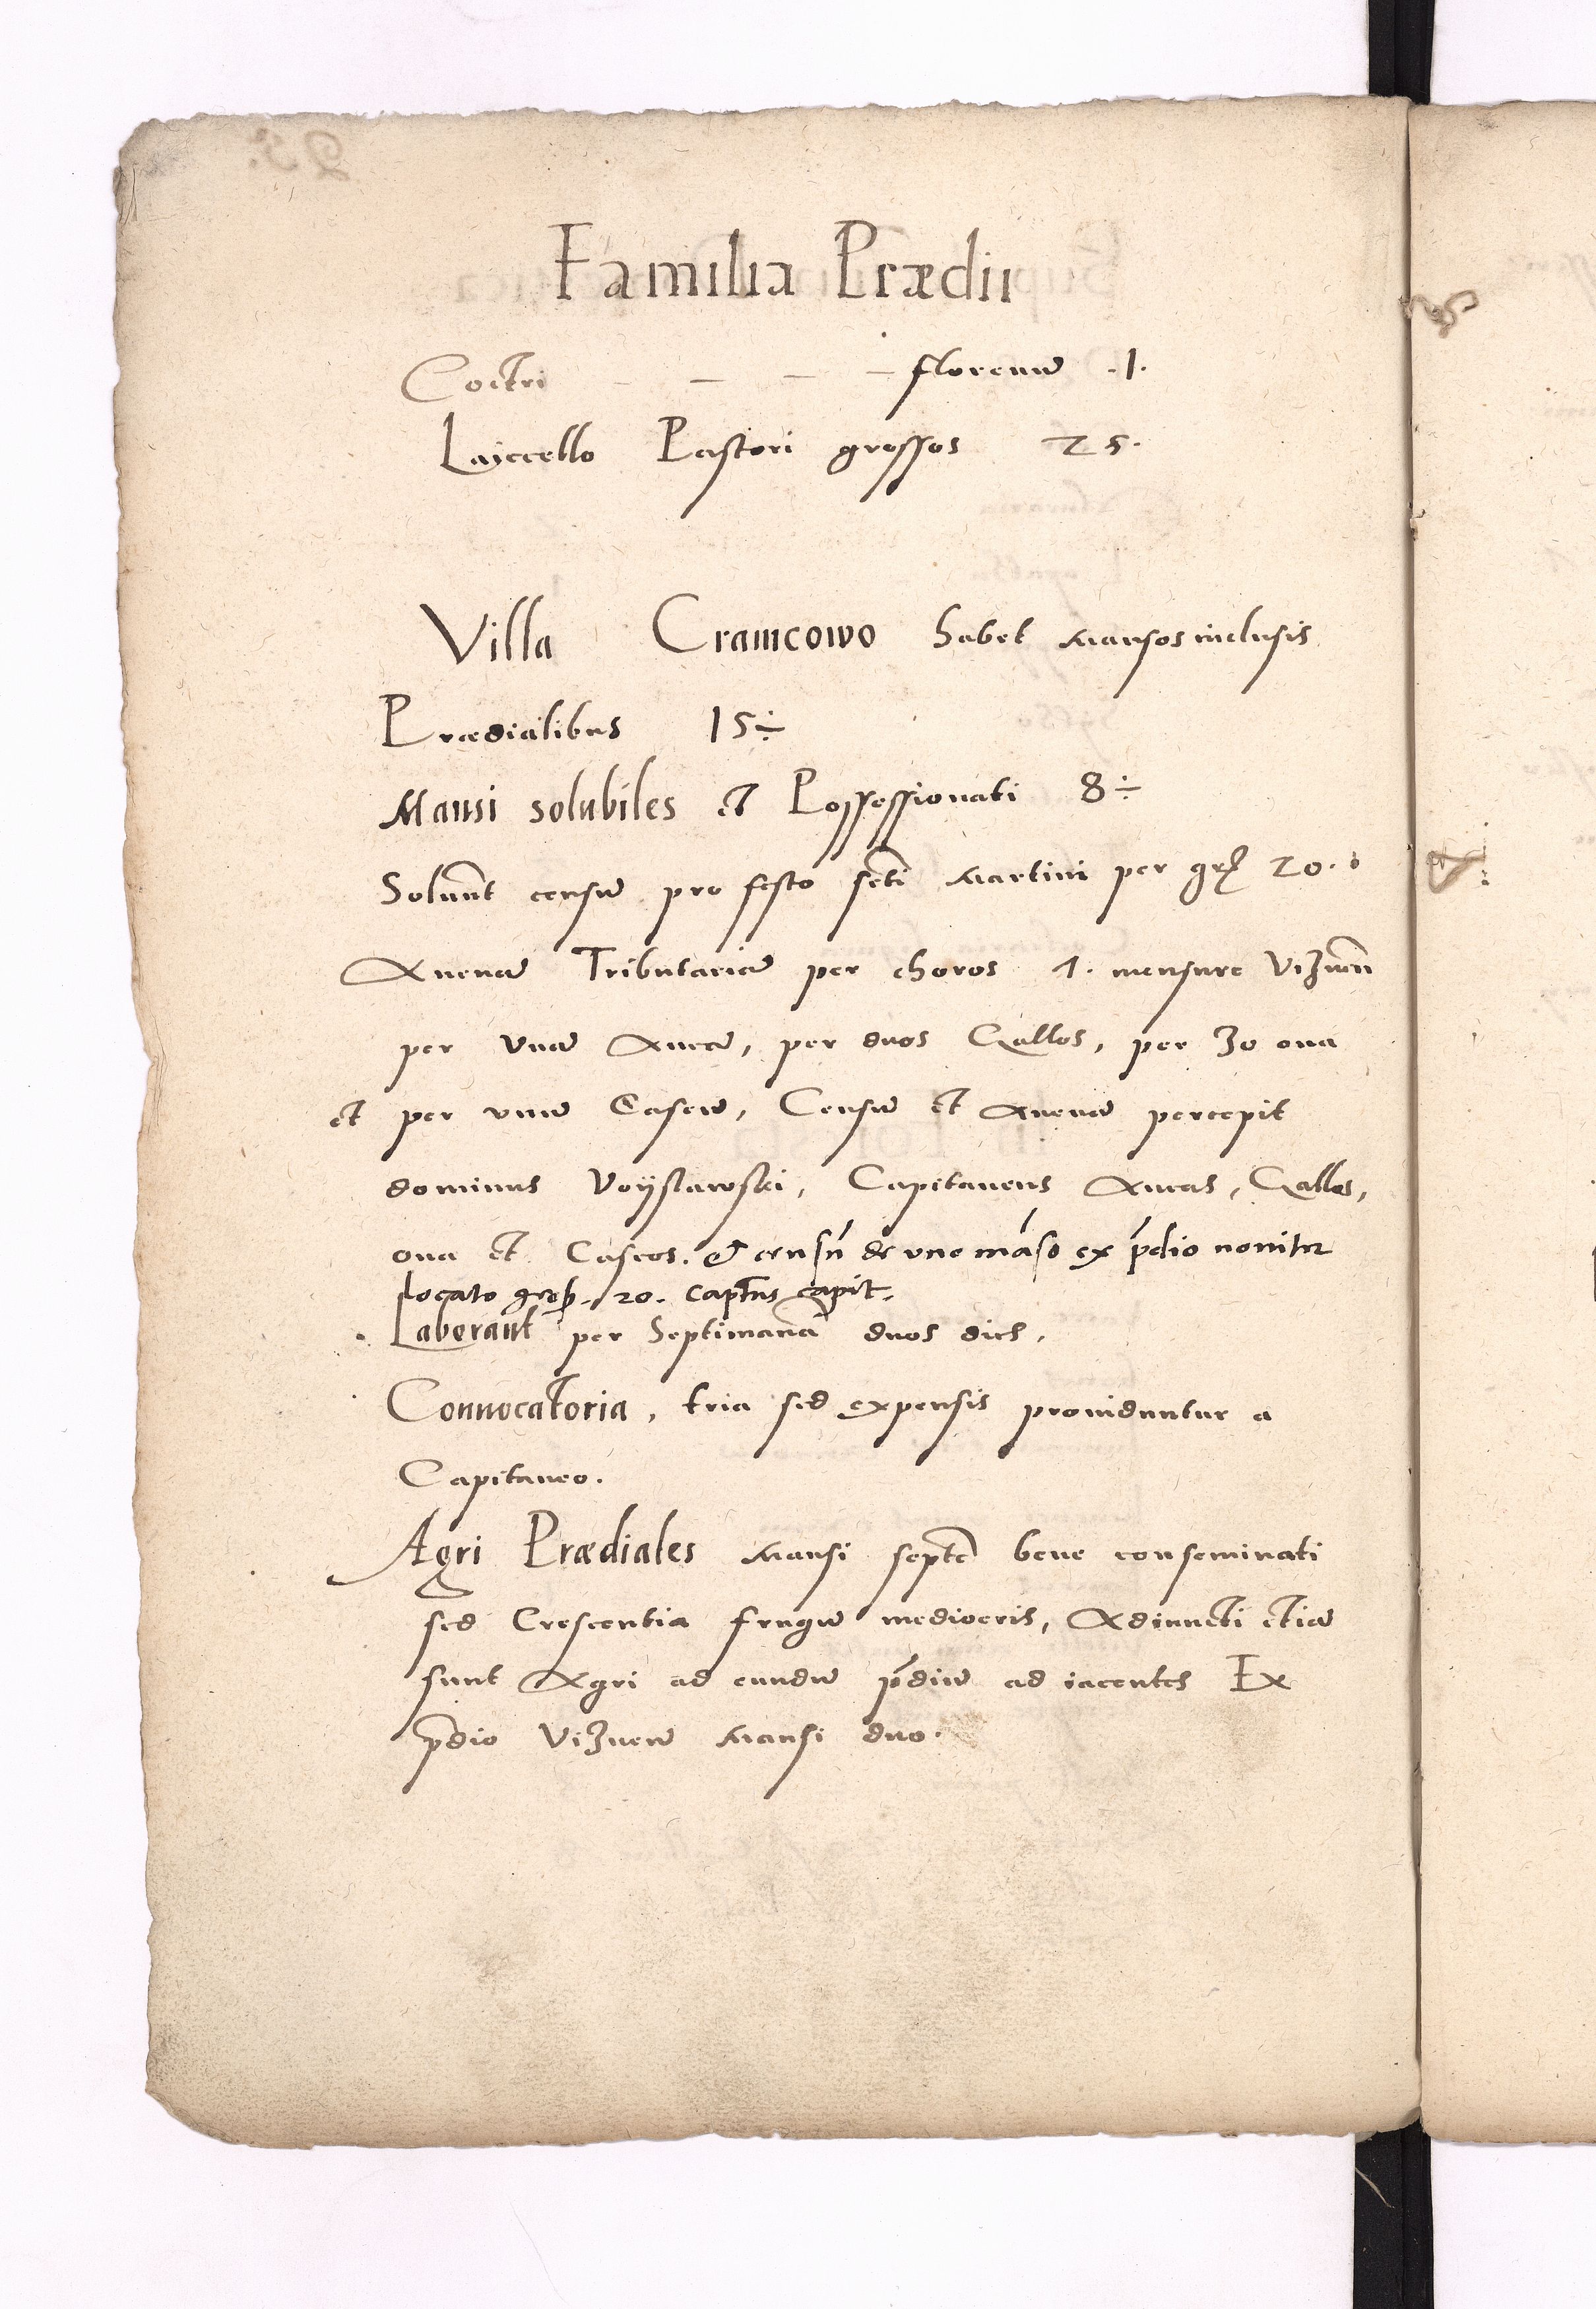 Familia Prædii
Coctri – – – – florenũ .1.
Laiccello Pastori grossos 25.
Villa Cramcowo habet mansos inclusis
Prædialibus 15÷
Mansi solubiles et Possessionati 8÷
Soluũt censũ pro festo scti Martini per gr 20.
Auenã Tributariã per choros 1. mensure Viznẽn
per vnã Aucã, per duos Gallos, per 30 oua
et per vnũ Caseũ, Censũ et Auenã percepit
dominus Voyslawski, Capitaneus Aucas, Gallos,
oua et Caseos. et censũ de vno mãso ex p̃dio nouiter
locato gros. 20. capit.
Laborant per Septimanã duos dies.
Connocatoria, tria sed expensis prouiduntur a
Capitaneo.
Agri Prædiales Mansi septẽ bene conseminati
sed Crescentia frugũ mediocris, Adiuncti etiã
sunt Agri ad eundũ p̃diũ ad iacentes Ex
p̃dio Viznẽn Mansi duo.